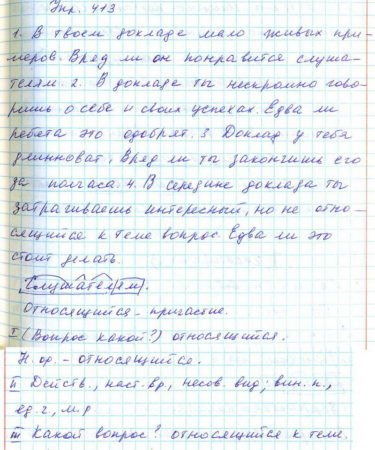 Упр. 413
1. В твоем докладе мало живых при-
меров. Вряд ли он понравится слуша-
телям. 2. В докладе ты нескромно гово-
ришь о себе и своих успехах. Едва ли
ребята это одобрят. 3. Доклад у тебя
длинноват, Вряд ли ты закончишь его
за полчаса. 4. В середине доклада ты
затрагиваешь интересный, но не отно-
сящийся к теме вопрос. Едва ли это
стоит делать.
Слушателям.
Относящийся - причастие.
I (Вопрос какой?) относящийся.
Н.ф. - относящийся.
II Действ., наст. вр, несов. вид; вин. п.,
ед. г., м. р
III Какой вопрос? относящийся к теме.